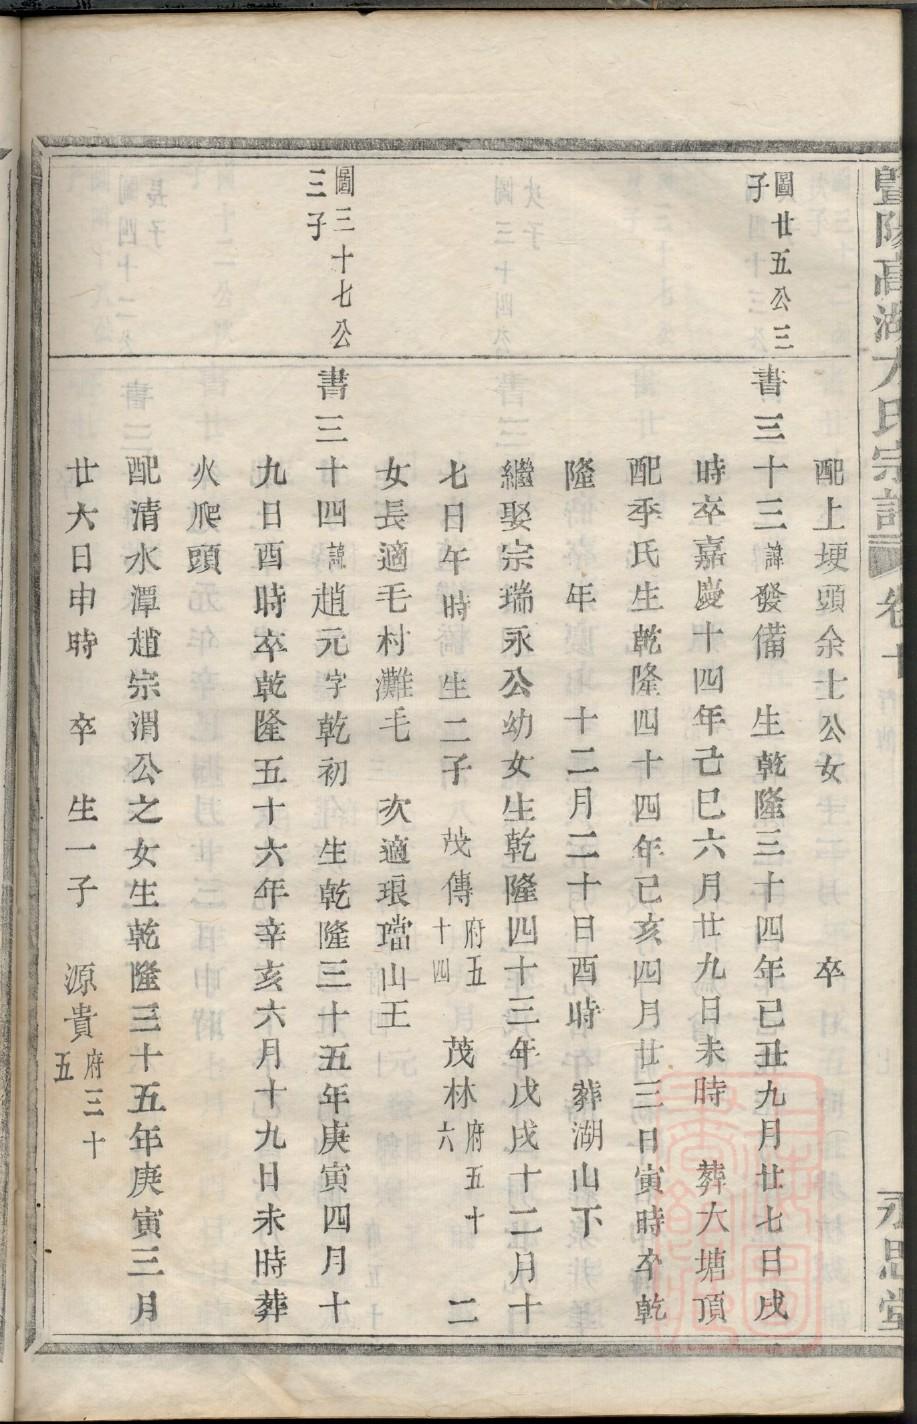 暨陽高湖方氏宗譜 卷十 永思堂
配上埂頭余士公女 卒
圖廿五公三子
書三十三諱發備 生乾隆三十四年己丑九月廿七日戌
時卒嘉慶十四年己巳六月廿九日未時 葬大塘頂
配季氏生乾隆四十四年己亥四月廿三日寅時卒乾
隆 年 十二月二十日酉時 葬湖山下
繼娶宗瑞永公幼女生乾隆四十三年戊戌十二月十
七日午時 生二子 茂傳府五十四 茂林府五十六 二
女長適毛村灘毛 次適琅璫山王
圖三十七公三子
書三十四諱趙元字乾初 生乾隆三十五年庚寅四月十
九日酉時卒乾隆五十六年辛亥六月十九日未時葬
火爬頭
配清水潭趙宗渭公之女生乾隆三十五年庚寅三月
廿六日申時 卒 生一子 源貴府三十五